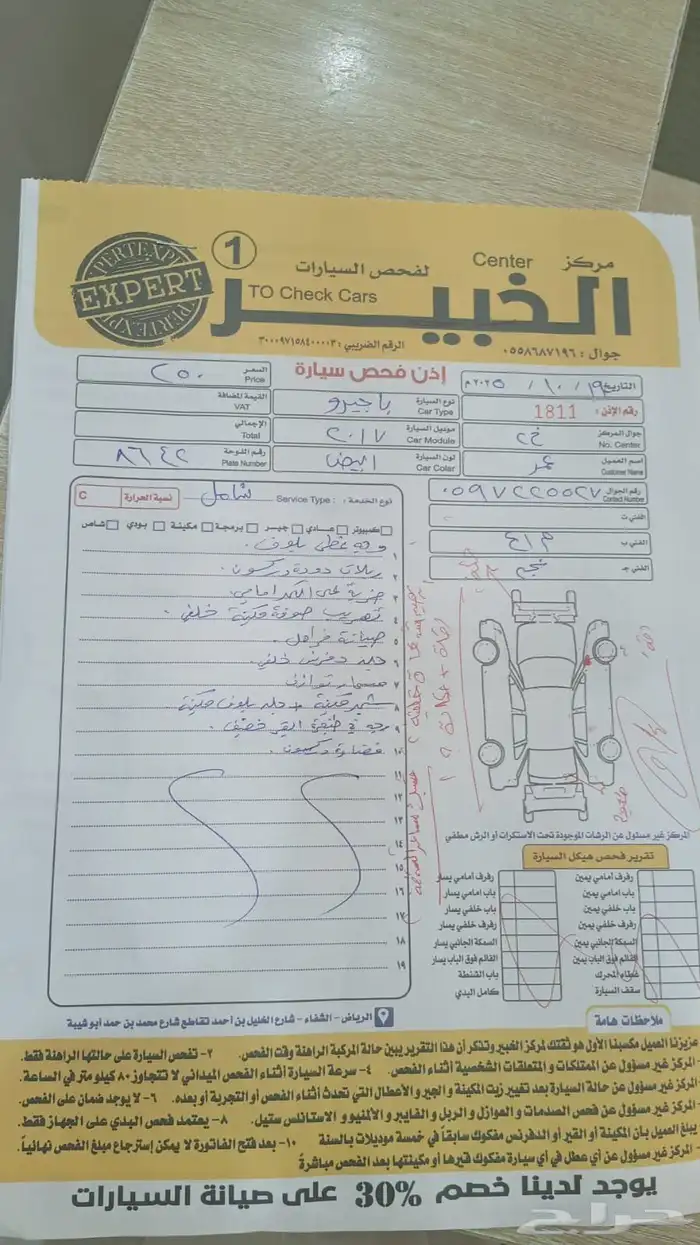 مركز Center
لفحص السيارات
الخبيــــر
TO Check Cars
1
EXPERT
جوال : ٠٥٥٨٦٨٧١٩٦
الرقم الضريبي : ٣٠٠٠٩٧١٥٨٤٠٠٠٠٣
إذن فحص سيارة
التاريخ ١٩ / ١٠ / ٢٠٢٥م
السعر Price ٢٥٠
رقم الإذن : 1811
نوع السيارة Car Type باجيرو
القيمة المضافة VAT
جوال المركز No. Center
موديل السيارة Car Module ٢٠١٧
الإجمالي Total
اسم العميل Customer Name عمر
لون السيارة Car Color ابيض
رقم اللوحة Plate Number ٨٦٤٢
رقم الجوال Contact Number ٠٥٩٧٢٢٥٥٢٧
نوع الخدمة : Service Type : شامل
نسبة الحرارة C
الفني ت
الفني ب
الفني جـ نجم
كمبيوتر عادي جيبر برمجة مكينة بودي شاص
١ وجه غطى بلوف
٢
٣ ضربة على الكمر امامي
٤ تهريب صوفة مكينة خلفي
٥ صيانة فرامل
٦ جلد دفرنس خلفي
٧
٨
٩
١٠
١١
١٢
١٣
١٤
١٥
١٦
١٧
١٨
١٩
المركز غير مسئول عن الرشات الموجودة تحت الاستكرات أو الرش مطفي
تقرير فحص هيكل السيارة
رفرف أمامي يمين رفرف أمامي يسار
باب امامي يمين باب امامي يسار
باب خلفي يمين باب خلفي يسار
رفرف خلفي يمين رفرف خلفي يسار
السمكة الجانبي يمين السمكة الجانبي يسار
القائم فوق الباب يمين القائم فوق الباب يسار
غطاء المحرك باب الشنطة
سقف السيارة كامل البدي
الرياض - الشفاء - شارع الخليل بن أحمد تقاطع شارع محمد بن حمد أبو قيبة
ملاحظات هامة
عزيزنا العميل مكسبنا الأول هو ثقتك لمركز الخبير وتذكر أن هذا التقرير يبين حالة المركبة الراهنة وقت الفحص. ٢- تفحص السيارة على حالتها الراهنة فقط.
- المركز غير مسؤول عن الممتلكات و المتعلقات الشخصية أثناء الفحص. ٤- سرعة السيارة أثناء الفحص الميداني لا تتجاوز ٨٠ كيلو متر في الساعة.
- المركز غير مسؤول عن حالة السيارة بعد تغيير زيت المكينة و الجير و الأعطال التي تحدث أثناء الفحص أو التجربة أو بعده. ٦- لا يوجد ضمان على الفحص.
- المركز غير مسؤول عن فحص الصدمات و العوازل و الربل والفايبر و الالمنيو و الاستانلس ستيل. ٨- يعتمد فحص البدي على الجهاز فقط.
يبلغ العميل بأن المكينة أو القير أو الدفرنس مفكوك سابقاً في خمسة موديلات بالسنة ١٠- بعد فتح الفاتورة لا يمكن إسترجاع مبلغ الفحص نهائياً.
- المركز غير مسؤول عن أي عطل في أي سيارة مفكوك قيرها أو مكينتها بعد الفحص مباشرةً
يوجد لدينا خصم 30% على صيانة السيارات
حراج